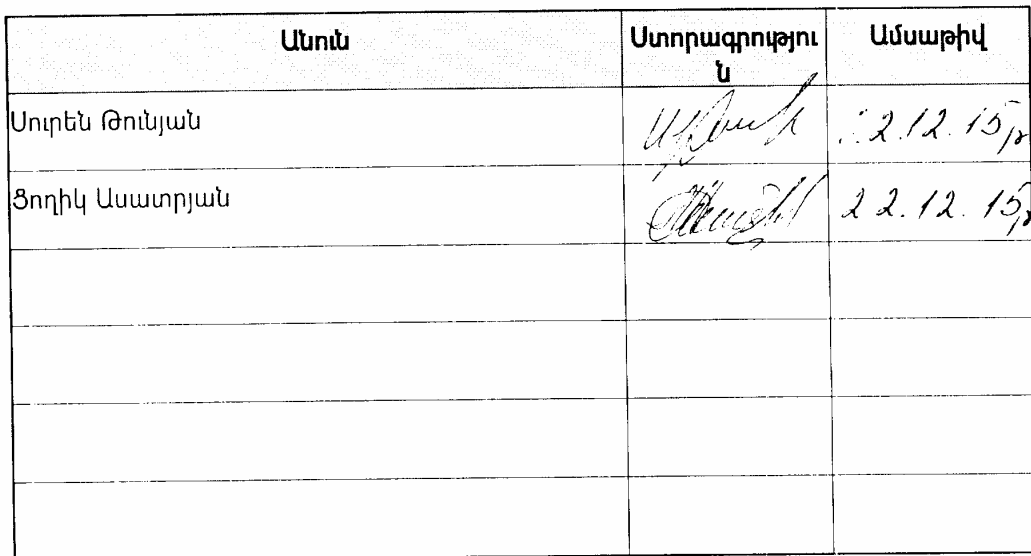 Անուն Ստորագրությու Ամսաթիվ
ն
Սուրեն Թունյան 22.12.15թ
Ցողիկ Ասատրյան 22.12.15թ